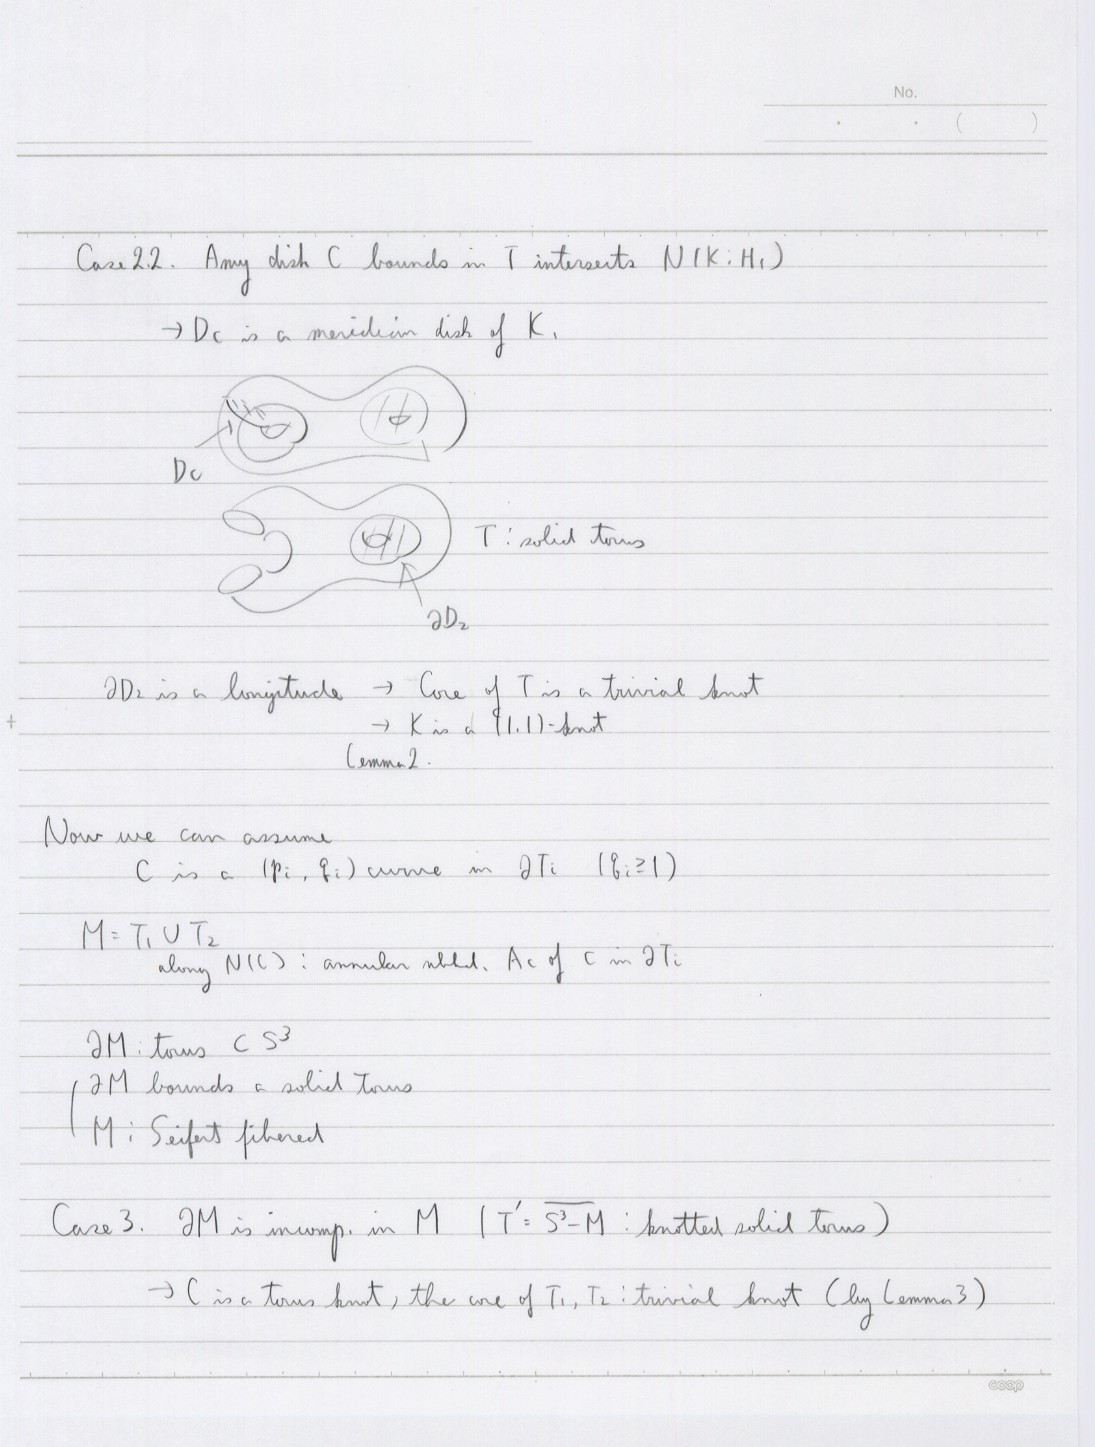 No.
. . ( )
Case 2.2. Any disk C bounds in T intersects N(K; H₁)
→ Dc is a meridian disk of K.
Dc
T : solid torus
∂D₂
∂D₂ is a longitude → Core of T is a trivial knot
→ K is a (1,1)-knot
Lemma 2.
Now we can assume
C is a (pᵢ, qᵢ) curve in ∂Tᵢ (qᵢ ≥ 1)
M = T₁ ∪ T₂
along N(C) : annular nbhd. Ac of C in ∂Tᵢ
∂M : torus ⊂ S³
∂M bounds a solid torus
M : Seifert fibered
Case 3. ∂M is incomp. in M (T' = \overline{S³-M} : knotted solid torus)
→ C is a torus knot, the core of T₁, T₂ : trivial knot (by Lemma 3)
coop